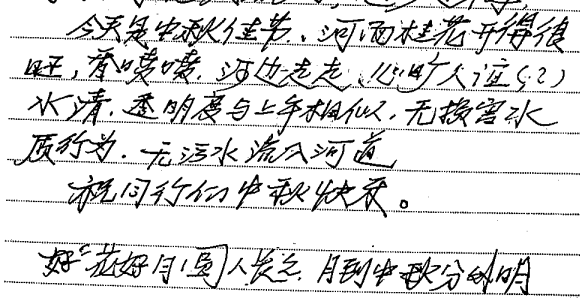 今天是中秋佳节、河面桂花开得很
旺,香喷喷.河边走走、心旷人谊(?)
水清.透明度与上午相似.无损害水
质行为.无污水流入河道
祝同行们中秋快乐。
好"花好月圆人长久.月到中秋分外明